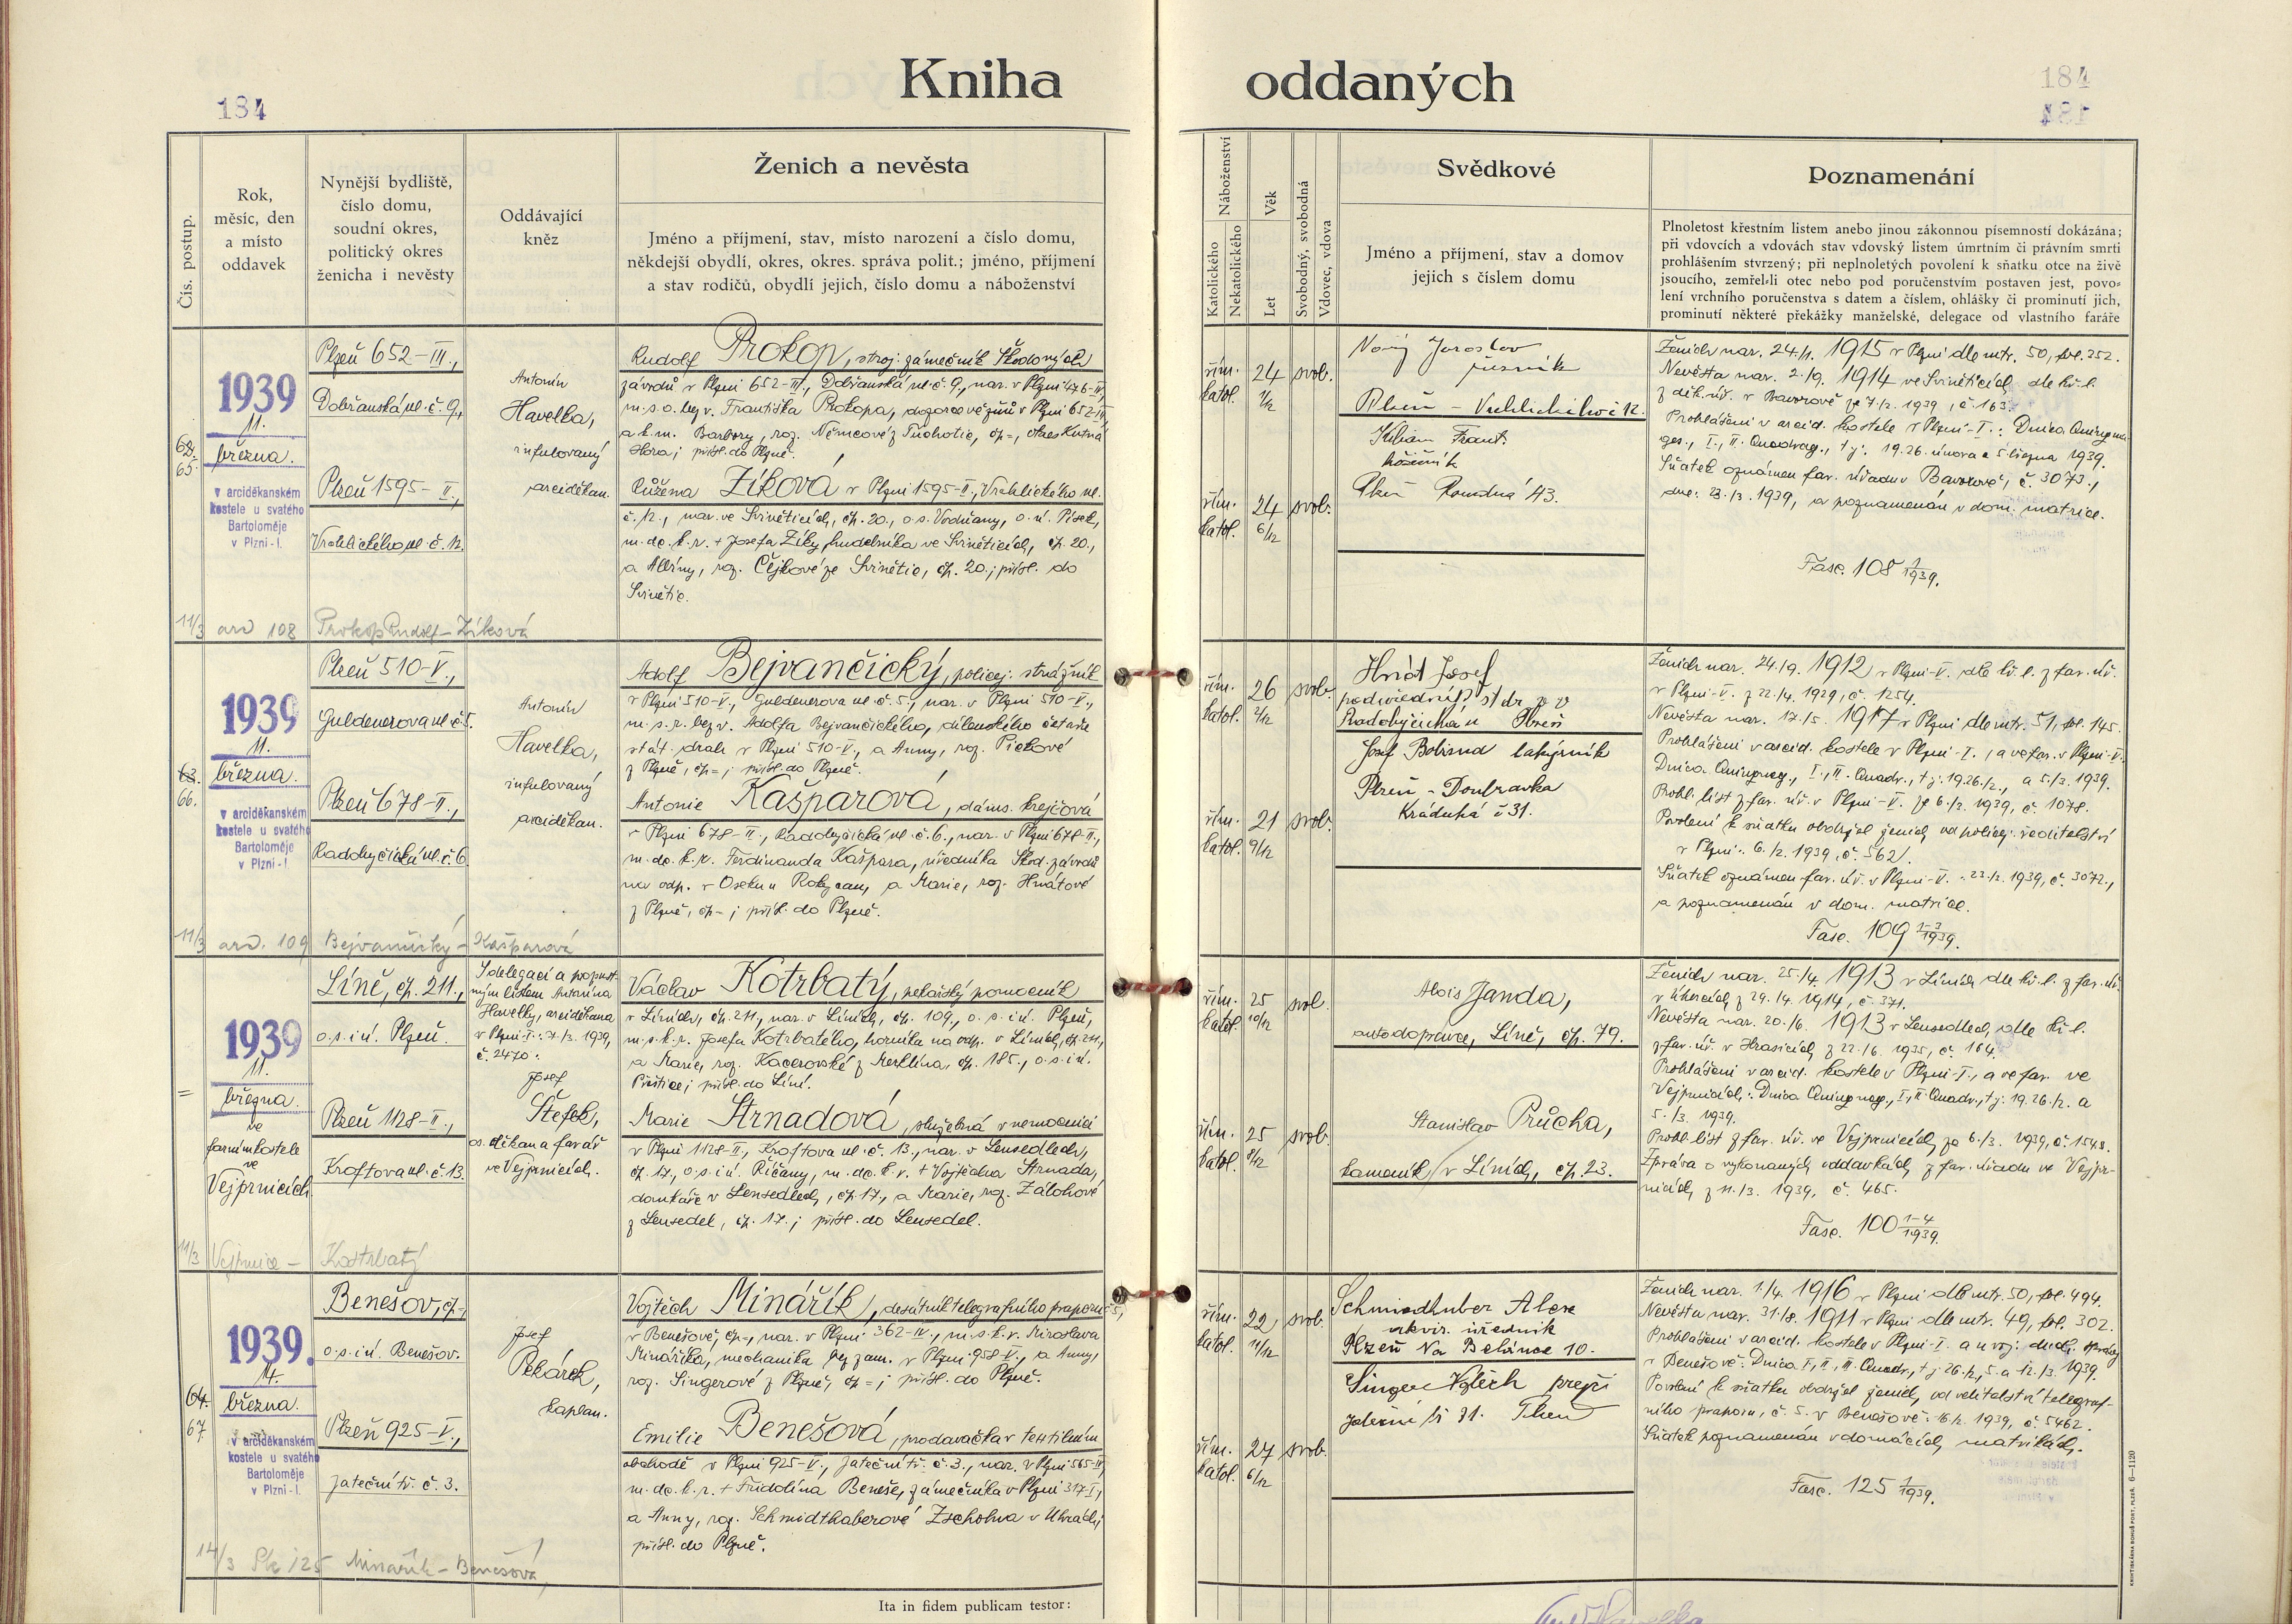 Kniha oddaných
184
184
Čís. postup.
Rok,
měsíc, den
a místo
oddavek
Nynější bydliště,
číslo domu,
soudní okres,
politický okres
ženicha i nevěsty
Oddávající
kněz
Ženich a nevěsta
Jméno a příjmení, stav, místo narození a číslo domu,
někdejší obydlí, okres, okres. správa polit.; jméno, příjmení
a stav rodičů, obydlí jejich, číslo domu a náboženství
Náboženství
Katolického
Nekatolického
Věk
Let
Svobodný, svobodná
Vdovec, vdova
Svědkové
Jméno a příjmení, stav a domov
jejich s číslem domu
Poznamenání
Plnoletost křestním listem anebo jinou zákonnou písemností dokázána;
při vdovcích a vdovách stav vdovský listem úmrtním či právním smrti
prohlášením stvrzený; při neplnoletých povolení k sňatku otce na živě
jsoucího, zemřel-li otec nebo pod poručenstvím postaven jest, povo-
lení vrchního poručenstva s datem a číslem, ohlášky či prominutí jich,
prominutí některé překážky manželské, delegace od vlastního faráře
62.
65.
1939
11.
března.
v arciděkanském
kostele u svatého
Bartoloměje
v Plzni-I.
Plzeň 652-III.,
Dobřanská ul. č. 9,
Plzeň 1595-II.,
Vrchlického ul. č. 12.
Antonín
Havelka,
infulovaný
arciděkan.
Rudolf Prokop, stroj. zámečník Škodových
závodů v Plzni 652-III., Dobřanská ul. č. 9., nar. v Plzni 476-III.,
m. s. o. bez v. Františka Prokopa, dozorce vězňů v Plzni 652-III,
a k. m. Barbory, roz. Němcové z Tuchotic, čp=, okres Kutná
Hora; přísl. do Plzně.
Růžena Zíková v Plzni 1595-II., Vrchlického ul.
č. 12., nar. ve Svinětících, čp. 20., o. s. Vodňany, o. ú. Písek,
m. dc. k. v. + Josefa Zíky, hudebníka ve Svinětících, čp. 20.,
a Albíny, roz. Čejkové ze Svinětic, čp. 20.; přísl. do
Svinětic.
řím.
katol.
24
1/12
svob.
řím.
katol.
24
6/12
svob.
Nový Jaroslav
Plzeň - Vrchlického č 12.
Kilian Frant.
Plzeň Koudná 43.
Ženich nar. 24./1. 1915 v Plzni dle mtr. 50, fol. 252.
Nevěsta nar. 2./9. 1914 ve Svinětících dle kř. l.
z děk. úř. v Bavorově ze 7./2. 1939, č. 163.
Prohlášeni v arcid. kostele v Plzni-I.: Dnica Quinqua-
ges., I., II. Quadrag., t. j. 19. 26. února a 5. března 1939.
Sňatek oznámen far. úřadu v Bavorově, č. 3073.,
dne: 23./3. 1939, a poznamenán v dom. matrice.
Fasc. 108 1/1939.
11/3 arc 108 Prokop Rudolf - Zíková
63.
66.
1939
11.
března.
v arciděkanském
kostele u svatého
Bartoloměje
v Plzni-I
Plzeň 510-V.,
Guldenerova ul. č. 5.
Plzeň 678-II.,
Radobyčická ul. č. 6.
Antonín
Havelka,
infulovaný
arciděkan.
Adolf Bejvančický, policej. strážník
v Plzni 510-V., Guldenerova ul. č. 5., nar. v Plzni 510-V.,
m. s. r. bez v. Adolfa Bejvančického, dílenského četaře
stát. drah v Plzni 510-V., a Anny, roz. Pickové
z Plzně, čp=; přísl. do Plzně.
Antonie Kašparová, dáms. krejčová
v Plzni 678-II., Radobyčická ul. č. 6., nar. v Plzni 678-II.,
m. dc. k. v. Ferdinanda Kašpara, úředníka Škod. závodů
na odp. v Oseku u Rokycan, a Marie, roz. Hnátové
z Plzně, čp-; přísl. do Plzně.
řím.
katol.
26
5/12
svob.
řím.
katol.
21
9/12
svob.
Hnát Josef
Radobyčická u Plzeň
Josef Bobisud lakýrník
Plzeň - Doubravka
Krádnhá č 31.
Ženich nar. 24./9. 1912 v Plzni-V. dle kř. l. z far. úř.
v Plzni-V. z 22./4. 1929, č. 1254.
Nevěsta nar. 17./5. 1917 v Plzni dle mtr. 51, fol. 145.
Prohlášeni v arcid. kostele v Plzni-I., a ve far. v Plzni-V.
Dnica Quinquag., I., II. Quadr., t. j. 19. 26./2., a 5./3. 1939.
Prohl. list z far. úř. v Plzni-V. ze 6./3. 1939, č. 1078.
Povolení k sňatku obdržel ženich od policej. ředitelství
v Plzni: 6./2. 1939, č. 562/.
Sňatek oznámen far. úř. v Plzni-V.: 23./3. 1939, č. 3072.,
a poznamenán v dom. matrice.
Fasc. 109 1-3/1939.
11/3 arc. 109 Bejvančický - Kašparová
=
1939
11.
března.
ve
farním kostele
ve
Vejprnicích
Líně, čp. 211.,
o. s. i ú. Plzeň.
Plzeň 1128-II.,
Kroftova ul. č. 13.
S delegací a propust-
ným listem Antonína
Havelky, arciděkana
v Plzni-I.: 7./3. 1939,
č. 2470:
Josef
Štefek,
os. děkan a farář
ve Vejprnicích.
Václav Kotrbatý, pekařský pomocník
v Líních, čp. 211., nar. v Líních, čp. 109., o. s. i ú. Plzeň,
m. s. k. r. Josefa Kotrbatého, horníka na odp. v Líních, čp. 211.,
a Marie, roz. Kacerovské z Merklína, čp. 185., o. s. i ú.
Přeštice; přísl. do Líní.
Marie Strnadová, služebná v nemocnici
v Plzni 1128-II., Kroftova ul. č. 13., nar. v Lensedlech,
čp. 17., o. s. i ú. Říčany, m. dc. k. v. + Vojtěcha Strnada,
domkáře v Lensedlech, čp. 17., a Marie, roz. Zálohové
z Lensedel, čp. 17.; přísl. do Lensedel.
řím.
katol.
25
10/12
svob.
řím.
katol.
25
8/12
svob.
Alois Janda,
autodopravce, Líně, čp. 79.
Stanislav Průcha,
kameník v Líních, čp. 23.
Ženich nar. 25./4. 1913 v Líních dle kř. l. z far. úř.
v Chotěšově z 29./4. 1914, č. 371.
Nevěsta nar. 20./6. 1913 v Lensedlech, dle kř. l.
z far. úř. v Hrusicích z 22./6. 1935, č. 164.
Prohlášeni v arcid. kostele v Plzni-I., a ve far. ve
Vejprnicích: Dnica Quinquag., I., II. Quadr., t. j. 19. 26./2. a
5./3. 1939.
Prohl. list z far. úř. ve Vejprnicích ze 6./3. 1939, č. 1548.
Zpráva o vykonaných oddavkách z far. úřadu ve Vejpr-
nicích z 11./3. 1939, č. 465.
Fasc. 100 1-4/1939.
11/3 Vejprnice - Kostrbatý
64.
67.
1939.
14.
března.
v arciděkanském
kostele u svatého
Bartoloměje
v Plzni-I.
Benešov, čp-,
o. s. i ú. Benešov.
Plzeň 925-V.,
Jateční tř. č. 3.
Josef
Pekárek,
kaplan.
Vojtěch Minářík, desátník telegrafního praporu č. 5,
v Benešově, čp=, nar. v Plzni 362-IV., m. s. k. v. Miroslava
Mináříka, mechanika bez zam. v Plzni 958-V., a Anny,
roz. Singerové z Plzně, čp=; přísl. do Plzně.
Emilie Benešová, prodavačka v textilním
obchodě v Plzni 925-V., Jateční tř. č. 3., nar. v Plzni 565-III,
m. dc. k. r. + Fridolína Beneše, zámečníka v Plzni 317-I.,
a Anny, roz. Schmidthaberové Zscholna v Uhrách;
přísl. do Plzně.
řím.
katol.
22
11/12
svob.
řím.
katol.
27
6/12
svob.
Schmiedhuber Alex
úředník
Plzeň Na Belánce 10.
Singer Vojtěch
Jateční tř 31. Plzeň
Ženich nar. 1./4. 1916 v Plzni dle mtr. 50, fol. 494.
Nevěsta nar. 31./8. 1911 v Plzni dle mtr. 49, fol. 302.
Prohlášeni v arcid. kostele v Plzni-I. a u voj. duch. správy
v Benešově: Dnica I., II., III. Quadr., t. j. 26./2., 5. a 12./3. 1939.
Povolení k sňatku obdržel ženich od velitelství telegraf-
ního praporu, č. 5. v Benešově: 16./2. 1939, č. 5462.
Sňatek poznamenán v domácích matrikách.
Fasc. 125 1/1939.
14/3 Pk 125 Minařík - Benešová
Ita in fidem publicam testor:
KNIHTISKÁRNA BOHUŠ FOKT, PLZEŇ. 6-1120